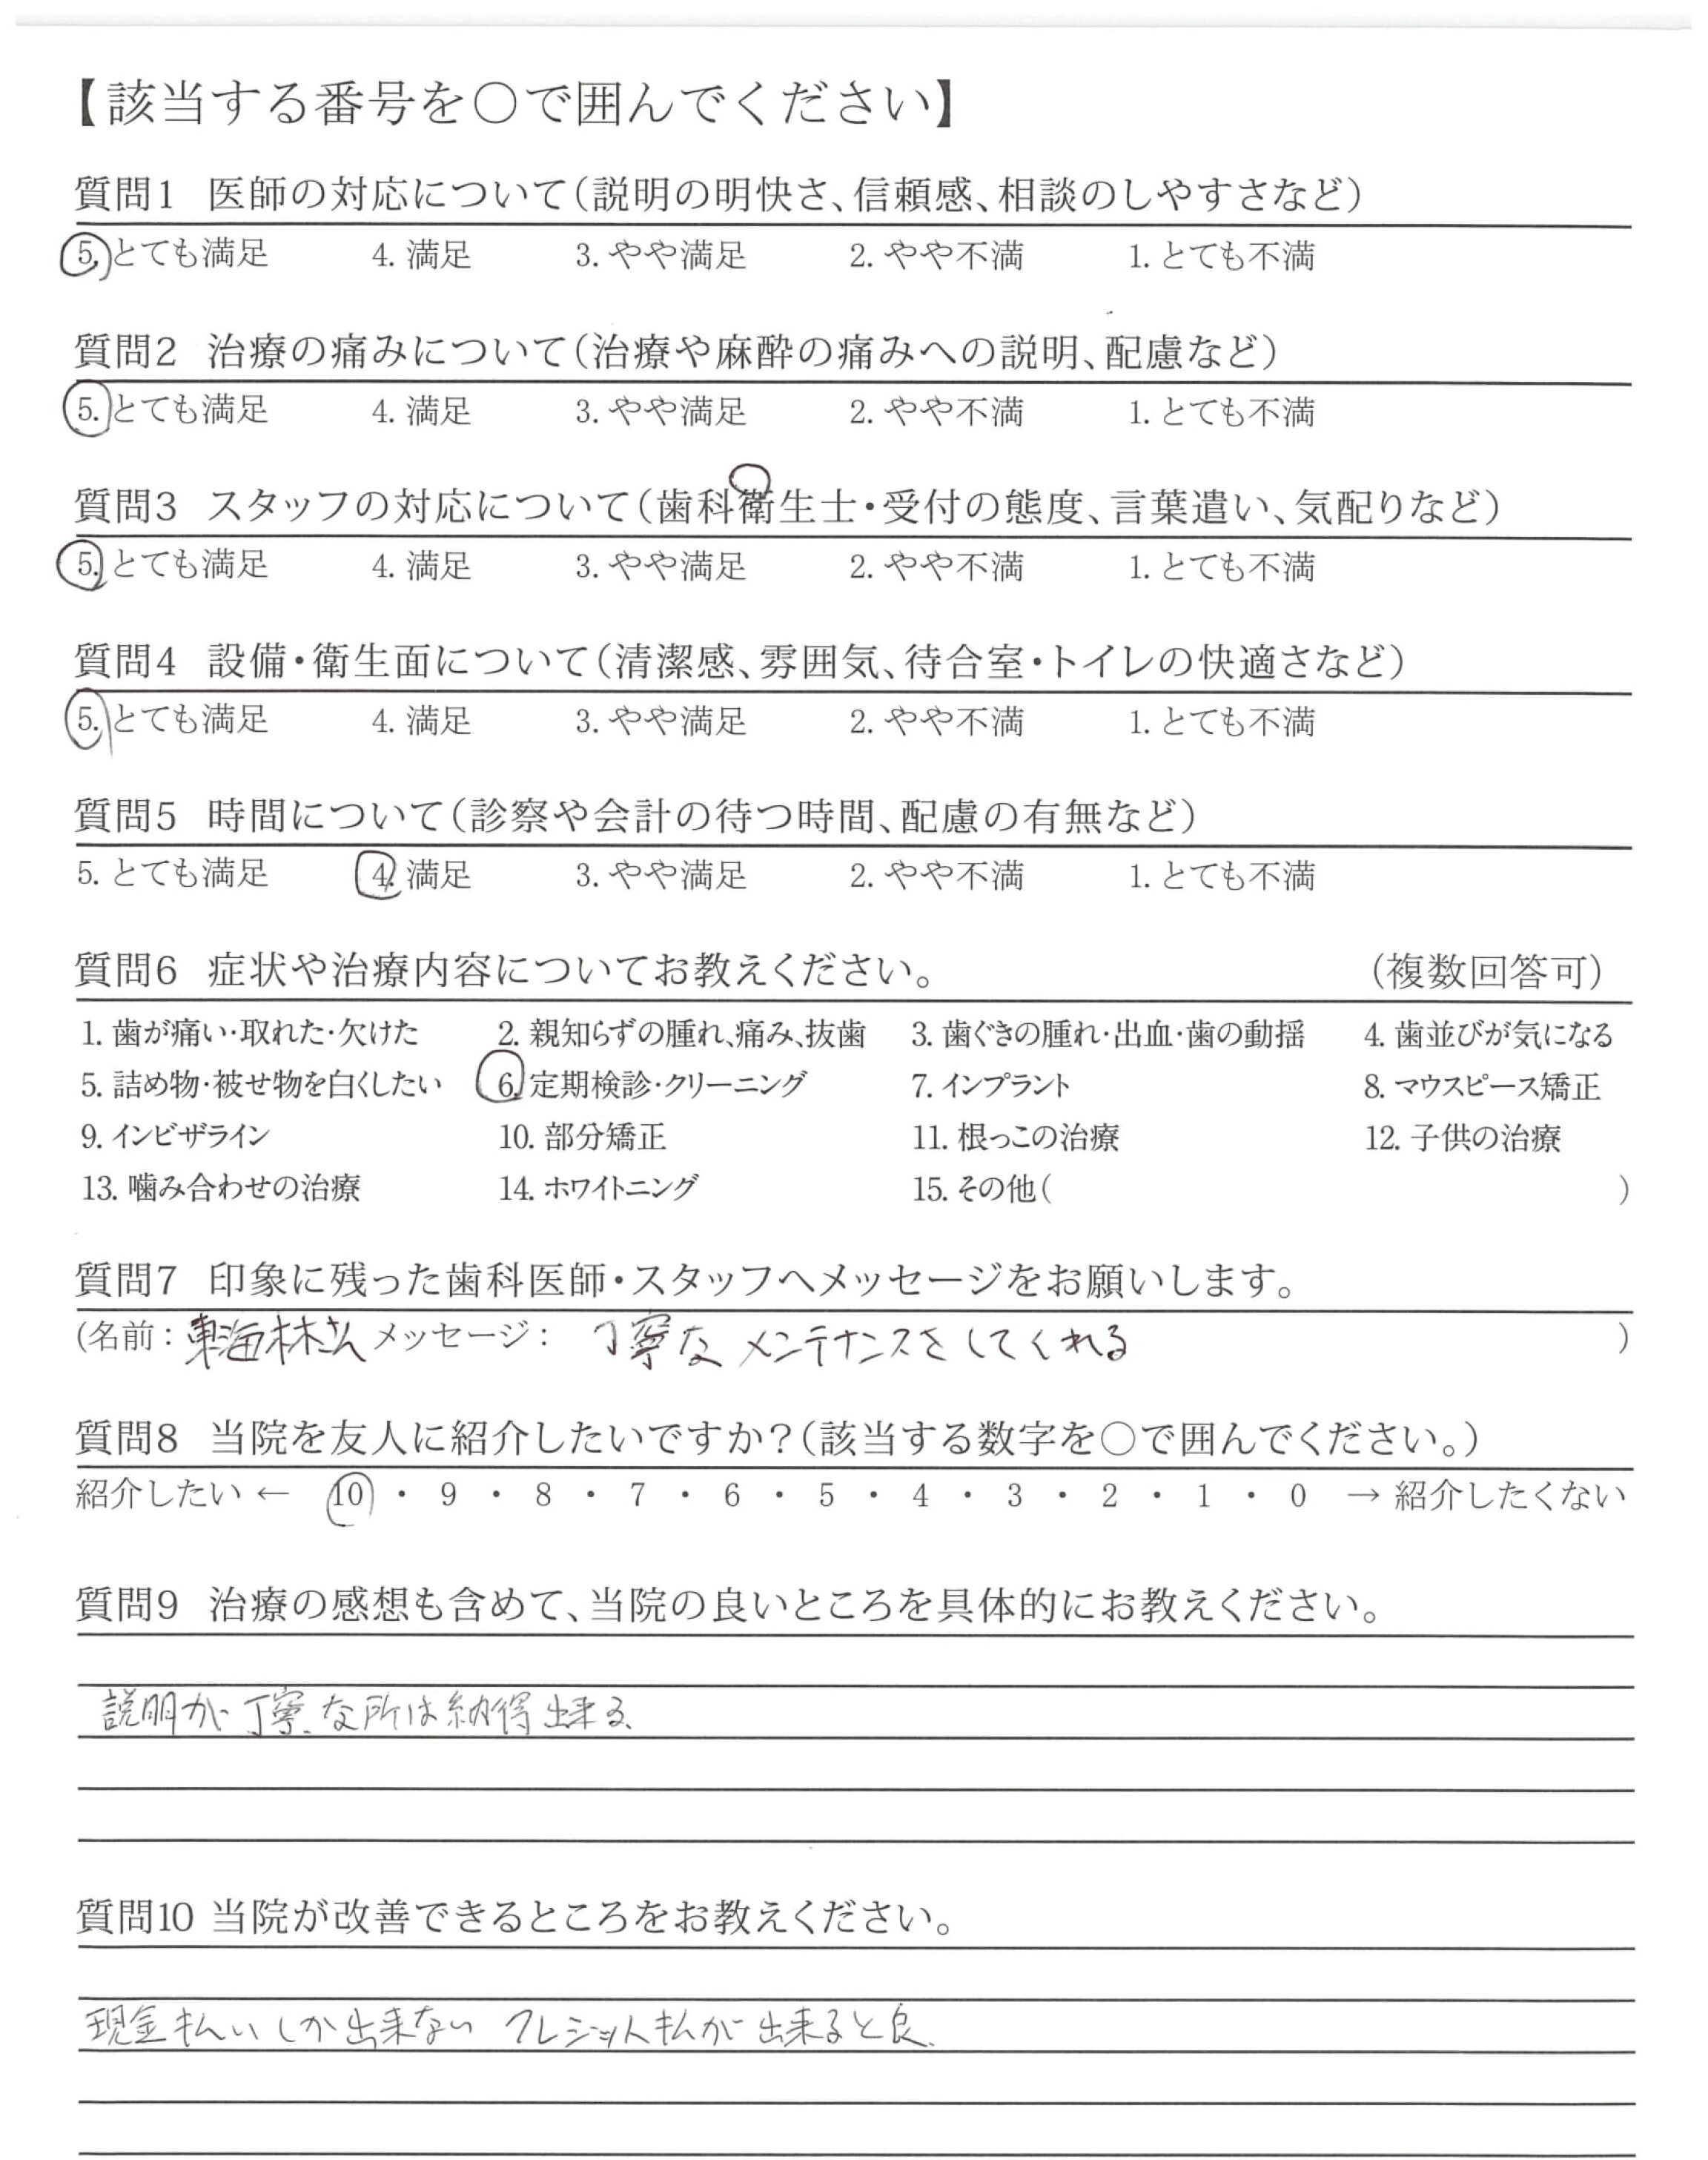 【該当する番号を○で囲んでください】
質問1 医師の対応について(説明の明快さ、信頼感、相談のしやすさなど)
5. とても満足 4. 満足 3. やや満足 2. やや不満 1. とても不満
質問2 治療の痛みについて(治療や麻酔の痛みへの説明、配慮など)
5. とても満足 4. 満足 3. やや満足 2. やや不満 1. とても不満
質問3 スタッフの対応について(歯科衛生士・受付の態度、言葉遣い、気配りなど)
5. とても満足 4. 満足 3. やや満足 2. やや不満 1. とても不満
質問4 設備・衛生面について(清潔感、雰囲気、待合室・トイレの快適さなど)
5. とても満足 4. 満足 3. やや満足 2. やや不満 1. とても不満
質問5 時間について(診察や会計の待つ時間、配慮の有無など)
5. とても満足 4. 満足 3. やや満足 2. やや不満 1. とても不満
質問6 症状や治療内容についてお教えください。 (複数回答可)
1. 歯が痛い・取れた・欠けた 2. 親知らずの腫れ、痛み、抜歯 3. 歯ぐきの腫れ・出血・歯の動揺 4. 歯並びが気になる
5. 詰め物・被せ物を白くしたい 6. 定期検診・クリーニング 7. インプラント 8. マウスピース矯正
9. インビザライン 10. 部分矯正 11. 根っこの治療 12. 子供の治療
13. 噛み合わせの治療 14. ホワイトニング 15. その他( )
質問7 印象に残った歯科医師・スタッフへメッセージをお願いします。
(名前:東海林さん メッセージ: 丁寧な メンテナンスをしてくれる )
質問8 当院を友人に紹介したいですか?(該当する数字を○で囲んでください。)
紹介したい ← 10 ・ 9 ・ 8 ・ 7 ・ 6 ・ 5 ・ 4 ・ 3 ・ 2 ・ 1 ・ 0 → 紹介したくない
質問9 治療の感想も含めて、当院の良いところを具体的にお教えください。
説明が丁寧な所は納得出来る
質問10 当院が改善できるところをお教えください。
現金払いしか出来ない クレジット払が出来ると良